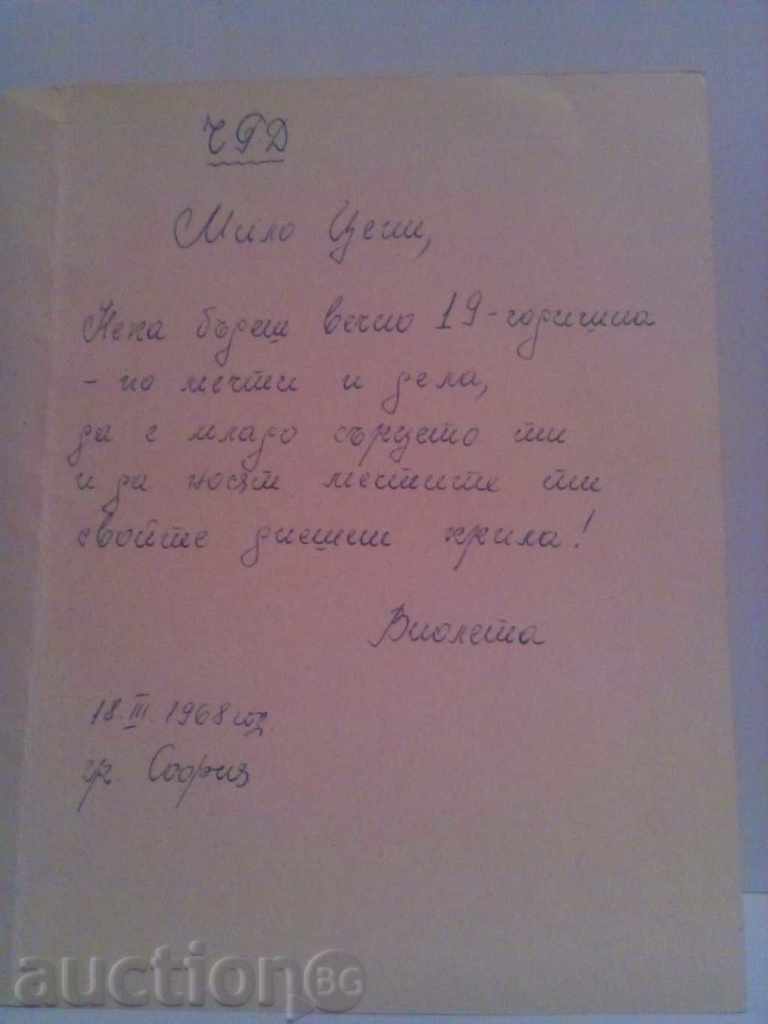 ЧРД
Мило Цени,
Нека бъдеш вечно 19-годишна
- по мечти и дела,
да е младо сърцето ти
и да носят мечтите ти
свойте днешни крила!
Виолета
18.III.1968 год.
гр. София
auctionBG